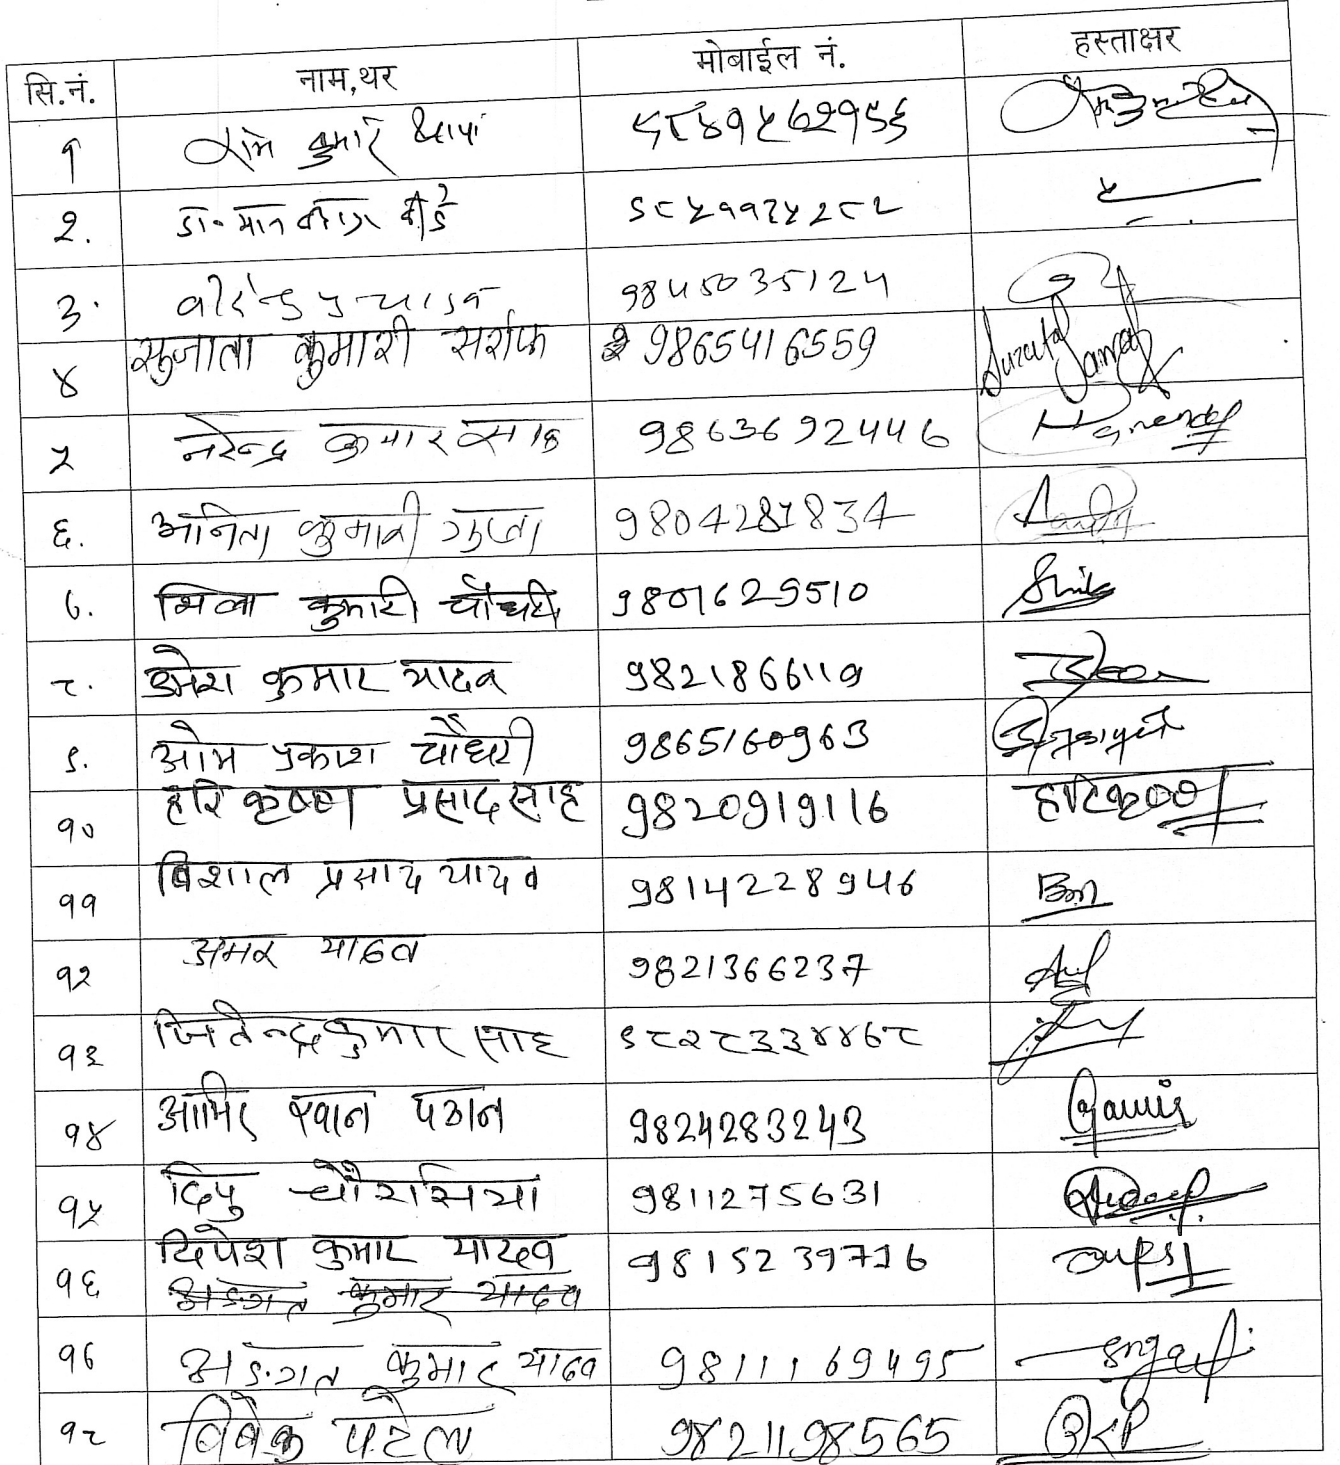 सि.नं. नाम,थर मोबाईल नं. हस्ताक्षर
१ राम कुमार थापा ९८४१५६२१९६
२. डा. मान ९८५११२५२८२
३. 9845035124
४ सुजाता कुमारी सर्राफ 9865416559 Suzata Sarraf
५ नरेन्द्र कुमार साह 9863692446 Narendra
६. अनिता कुमारी गुप्ता 9804287834
७. शिला कुमारी चौधरी 9801629510 Shila
८. उमेश कुमार यादव 9821866119
९. ओम प्रकाश चौधरी 9865160963
१० हरि कृष्ण प्रसाद साह 9820919116 हरिकृष्ण
११ बिशाल प्रसाद यादव 9814228946
१२ अमर यादव 9821366237
१३ जितेन्द्र कुमार साह ९८२८३३४४७८
१४ आमिर खान पठान 9824283243 Aamir
१५ दिपु चौरासिया 9811275631
१६ दिपेश कुमार यादव 9815239716
अङगत कुमार यादव
१७ अङगत कुमार यादव 9811169495
१८ बिबेक पटेल 9821198565 BKP